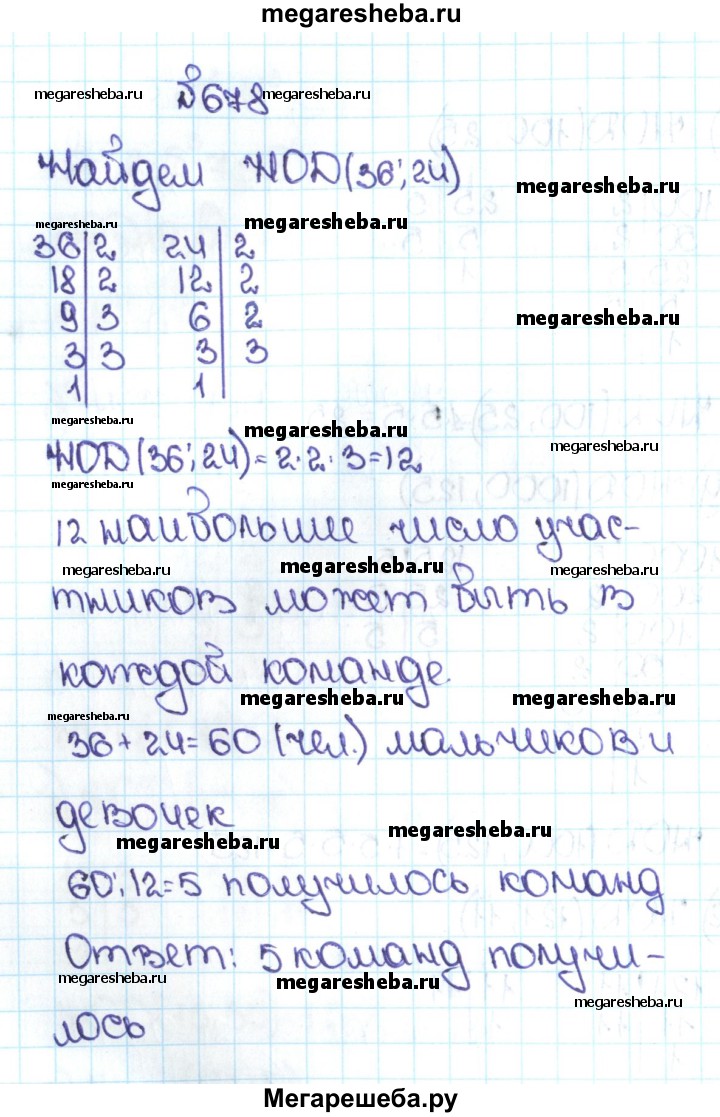 megaresheba.ru
megaresheba.ru №678 megaresheba.ru
Найдем НОД(36; 24)
megaresheba.ru
megaresheba.ru megaresheba.ru
36|2 24|2
18|2 12|2
9|3 6|2
megaresheba.ru
3|3 3|3
1 1
megaresheba.ru megaresheba.ru
megaresheba.ru
НОД(36; 24) = 2·2·3=12
megaresheba.ru
12 наибольшие число учас-
megaresheba.ru megaresheba.ru megaresheba.ru
тников может быть в
каждой команде.
megaresheba.ru megaresheba.ru
megaresheba.ru
36+24=60 (чел.) мальчиков и
девочек
megaresheba.ru megaresheba.ru
60:12=5 получилось команд
Ответ: 5 команд получи-
megaresheba.ru megaresheba.ru megaresheba.ru
лось
Мегарешеба.ру